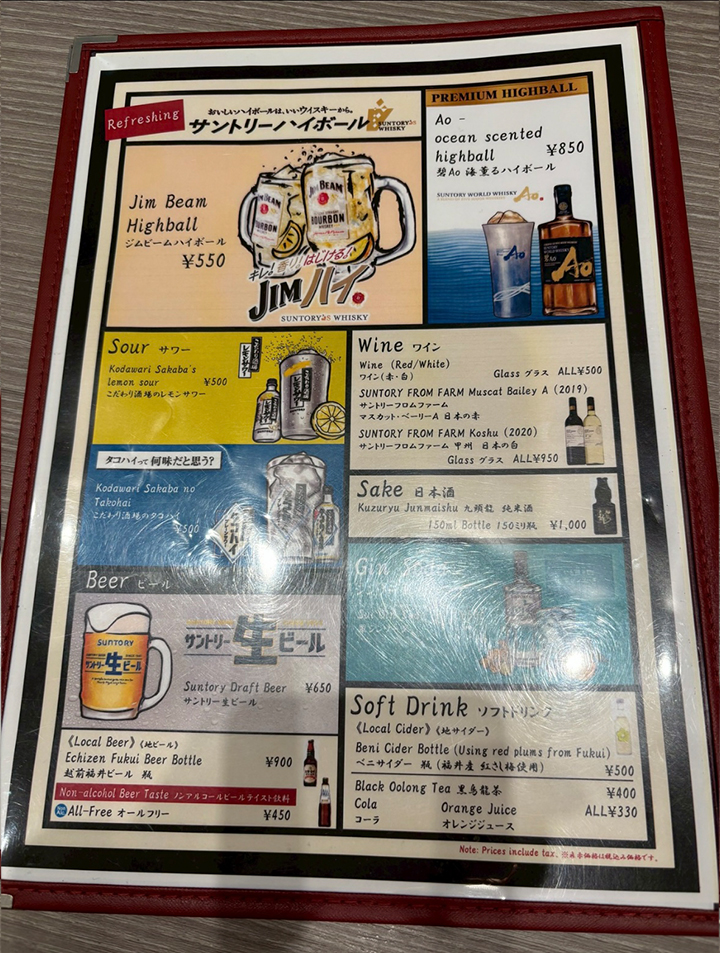 Refreshing
おいしいハイボールは、いいウイスキーから。
サントリーハイボール
SUNTORY WHISKY
Jim Beam
Highball
ジムビームハイボール
¥550
JIM BEAM
BOURBON
JIM BEAM
BOURBON
キレ!香り!はじける!
JIMハイ。
SUNTORY WHISKY
PREMIUM HIGHBALL
Ao -
ocean scented
highball ¥850
碧Ao 海薫るハイボール
SUNTORY WORLD WHISKY Ao.
Ao
Ao
Sour サワー
Kodawari Sakaba's
lemon sour ¥500
こだわり酒場のレモンサワー
こだわり酒場の
レモンサワー
タコハイって何味だと思う?
Kodawari Sakaba no
Takohai
こだわり酒場のタコハイ
¥500
Beer ビール
SUNTORY
サントリー生ビール
サントリー生ビール
Suntory Draft Beer ¥650
サントリー生ビール
《Local Beer》《地ビール》
Echizen Fukui Beer Bottle ¥900
越前福井ビール 瓶
Non-alcohol Beer Taste ノンアルコールビールテイスト飲料
All-Free オールフリー ¥450
Wine ワイン
Wine (Red/White)
ワイン(赤・白) Glass グラス ALL¥500
SUNTORY FROM FARM Muscat Bailey A (2019)
サントリーフロムファーム
マスカット・ベーリーA 日本の赤
SUNTORY FROM FARM Koshu (2020)
サントリーフロムファーム 甲州 日本の白
Glass グラス ALL¥950
Sake 日本酒
Kuzuryu Junmaishu 九頭龍 純米酒
150ml Bottle 150ミリ瓶 ¥1,000
Gin
Soft Drink ソフトドリンク
《Local Cider》《地サイダー》
Beni Cider Bottle (Using red plums from Fukui)
ベニサイダー 瓶 (福井産 紅さし梅使用)
¥500
Black Oolong Tea 黒烏龍茶 ¥400
Cola Orange Juice ALL¥330
コーラ オレンジジュース
Note: Prices include tax. ※表示価格は税込み価格です。